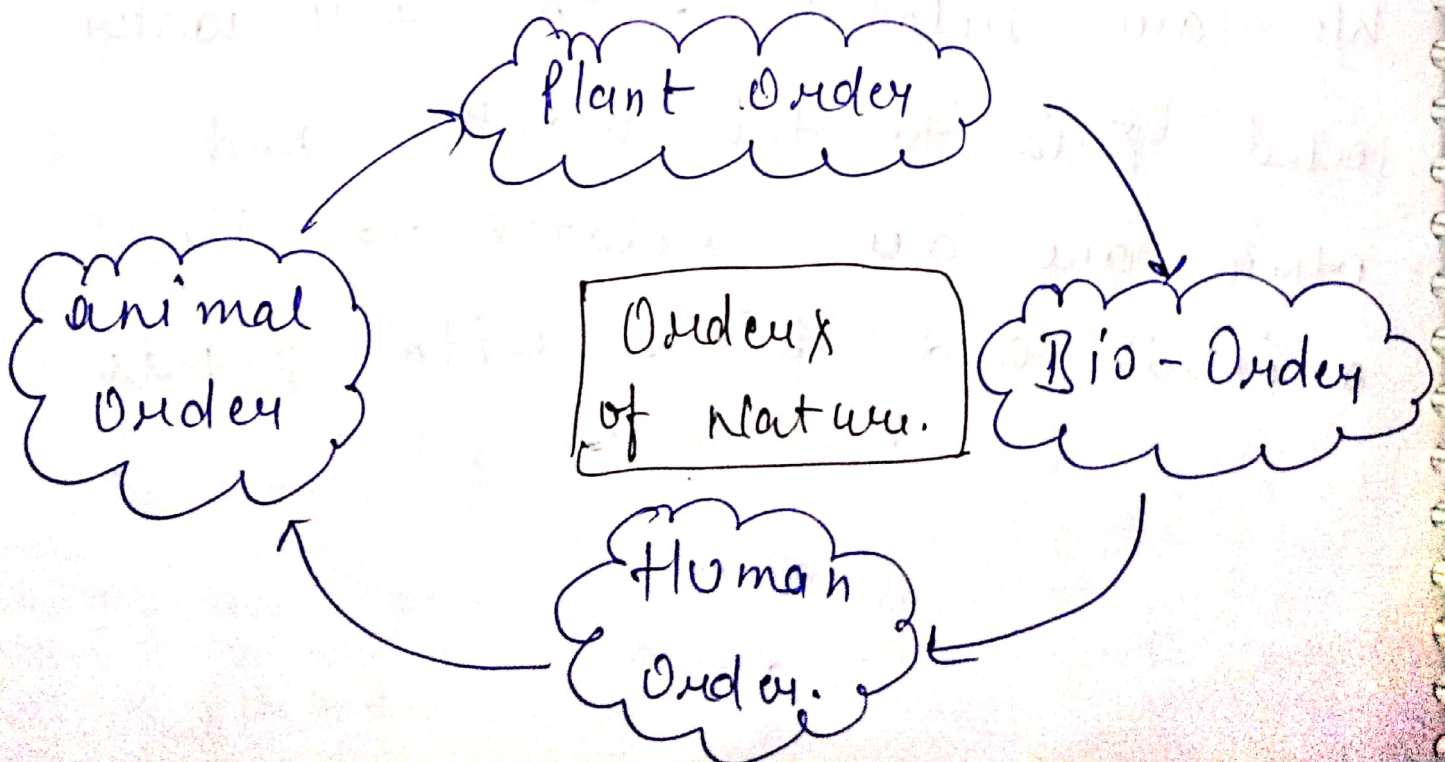 Plant Order
animal
Order
Orders
of Nature.
Bio-Order
Human
Order.